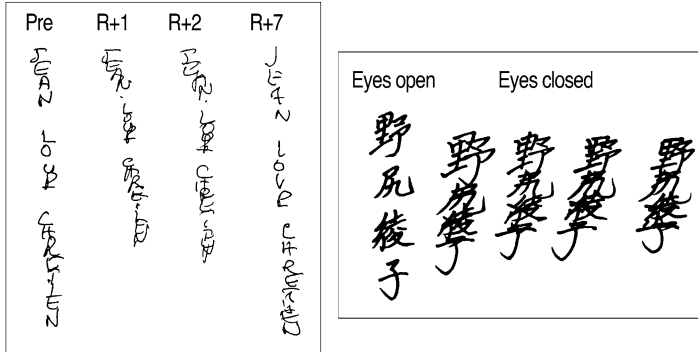 Pre R+1 R+2 R+7
JEAN LOUP CHRETIEN
JEAN LOUP CHRETIEN
JEAN LOUP CHRETIEN
JEAN LOUP CHRETIEN
Eyes open Eyes closed
野尻綾子
野尻綾子
野尻綾子
野尻綾子
野尻綾子